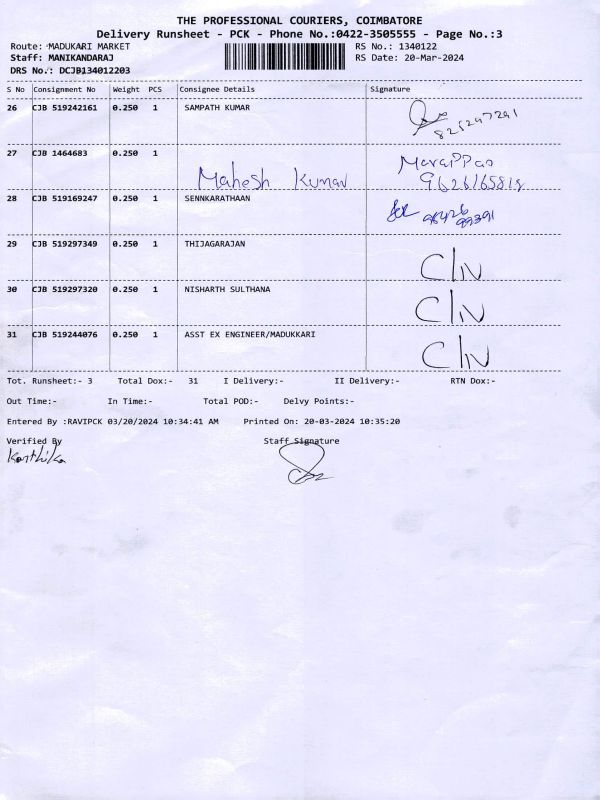 THE PROFESSIONAL COURIERS, COIMBATORE
Delivery Runsheet - PCK - Phone No.:0422-3505555 - Page No.:3
Route: MADUKARI MARKET RS No.: 1340122
Staff: MANIKANDARAJ RS Date: 20-Mar-2024
DRS No.: DCJB134012203
S No Consignment No Weight PCS Consignee Details Signature
26 CJB 519242161 0.250 1 SAMPATH KUMAR
27 CJB 1464683 0.250 1 Mahesh Kumar
28 CJB 519169247 0.250 1 SENNKARATHAAN
29 CJB 519297349 0.250 1 THIJAGARAJAN
30 CJB 519297320 0.250 1 NISHARTH SULTHANA
31 CJB 519244076 0.250 1 ASST EX ENGINEER/MADUKKARI
Tot. Runsheet:- 3 Total Dox:- 31 I Delivery:- II Delivery:- RTN Dox:-
Out Time:- In Time:- Total POD:- Delvy Points:-
Entered By :RAVIPCK 03/20/2024 10:34:41 AM Printed On: 20-03-2024 10:35:20
Verified By Staff Signature
Karthika